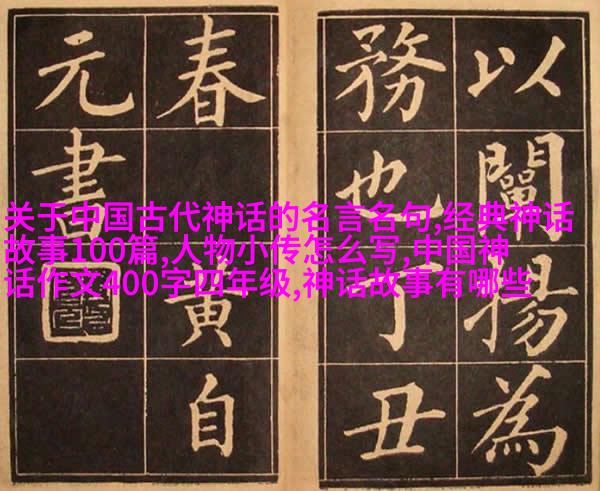 以闡揚為
務也丁丑
春黄自
元書
关于中国古代神话的名言名句,经典神话
故事100篇,人物小传怎么写,中国神
话作文400字四年级,神话故事有哪些